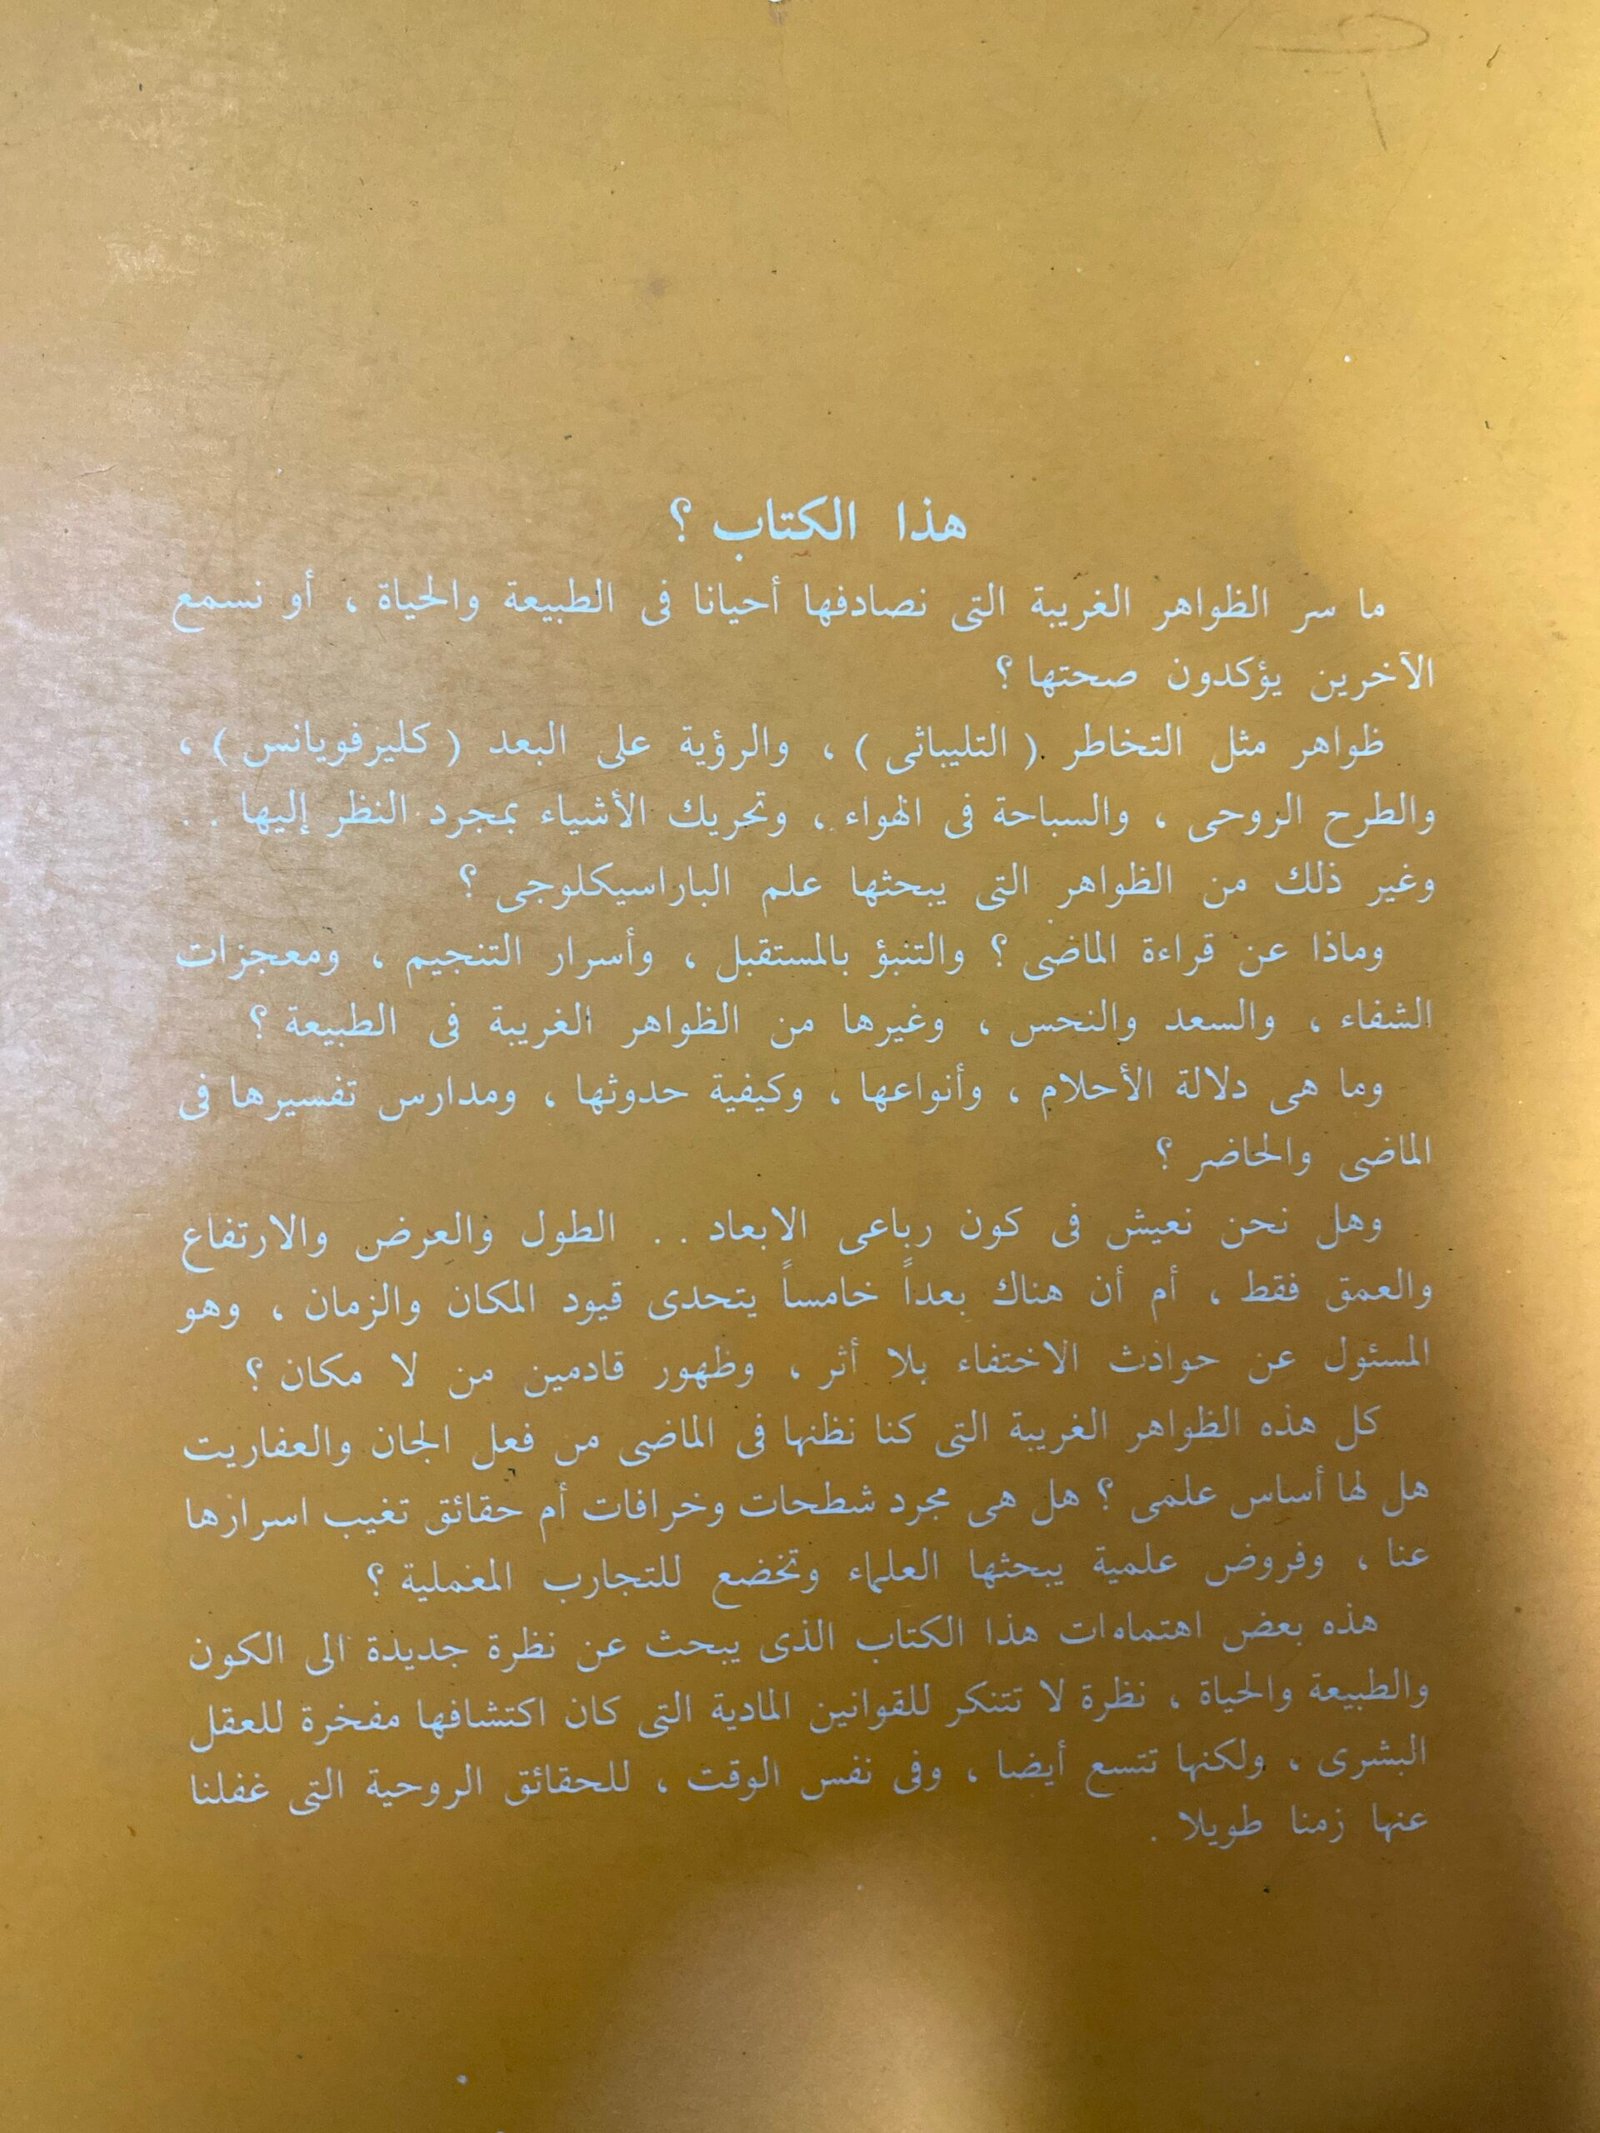 هذا الكتاب ؟
ما سر الظواهر الغريبة التى نصادفها أحيانا فى الطبيعة والحياة ، أو نسمع
الآخرين يؤكدون صحتها ؟
ظواهر مثل التخاطر ( التليباثى ) ، والرؤية على البعد ( كليرفويانس ) ،
والطرح الروحى ، والسباحة فى الهواء ، وتحريك الأشياء بمجرد النظر إليها . .
وغير ذلك من الظواهر التى يبحثها علم الباراسيكلوجى ؟
وماذا عن قراءة الماضى ؟ والتنبؤ بالمستقبل ، وأسرار التنجيم ، ومعجزات
الشفاء ، والسعد والنحس ، وغيرها من الظواهر الغريبة فى الطبيعة ؟
وما هى دلالة الأحلام ، وأنواعها ، وكيفية حدوثها ، ومدارس تفسيرها فى
الماضى والحاضر ؟
وهل نحن نعيش فى كون رباعى الابعاد . . الطول والعرض والارتفاع
والعمق فقط ، أم أن هناك بعداً خامساً يتحدى قيود المكان والزمان ، وهو
المسئول عن حوادث الاختفاء بلا أثر ، وظهور قادمين من لا مكان ؟
كل هذه الظواهر الغريبة التى كنا نظنها فى الماضى من فعل الجان والعفاريت
هل لها أساس علمى ؟ هل هى مجرد شطحات وخرافات أم حقائق تغيب اسرارها
عنا ، وفروض علمية يبحثها العلماء وتخضع للتجارب المعملية ؟
هذه بعض اهتمامات هذا الكتاب الذى يبحث عن نظرة جديدة الى الكون
والطبيعة والحياة ، نظرة لا تتنكر للقوانين المادية التى كان اكتشافها مفخرة للعقل
البشرى ، ولكنها تتسع أيضا ، وفى نفس الوقت ، للحقائق الروحية التى غفلنا
عنها زمنا طويلا .